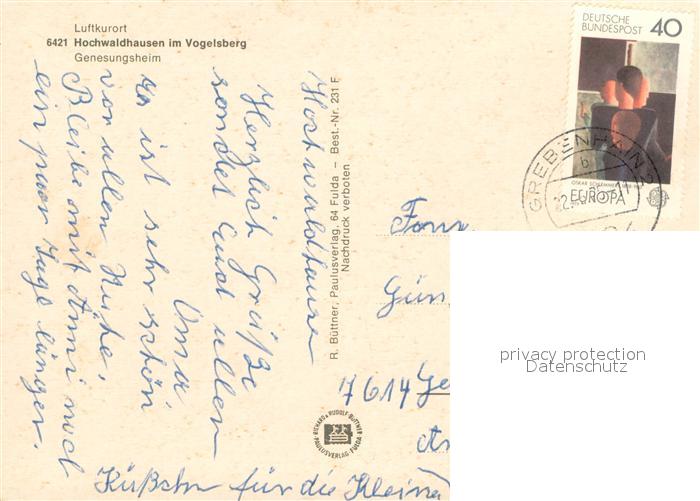 Luftkurort
6421 Hochwaldhausen im Vogelsberg
Genesungsheim
Hochwaldhausen
Herzlich Grüße
sendet Euch allen
Oma
Es ist sehr schön
von allen Ruhe.
Bleibe mit Anni noch
ein paar Tage länger.
Küßchen für die Kleine
R. Büttner, Paulusverlag, 64 Fulda – Best.-Nr. 231 F
Nachdruck verboten
DEUTSCHE
BUNDESPOST 40
OSKAR SCHLEMMER
EUROPA
GREBENHAIN
b
Fam
Gün
7614 Ge
RICHARD & RUDOLF BÜTTNER
PAULUSVERLAG · FULDA
privacy protection
Datenschutz